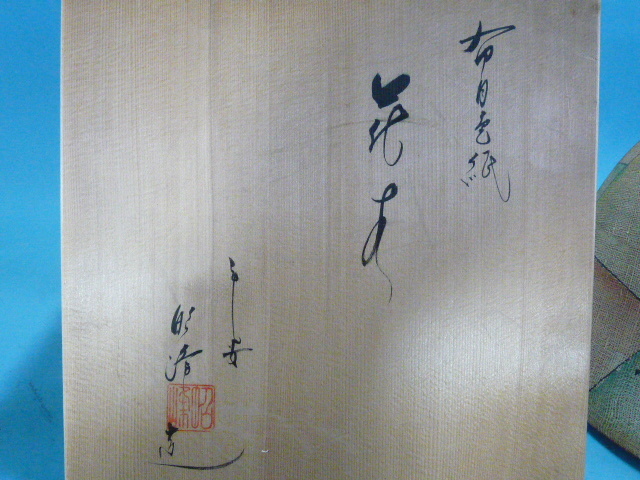 布目色紙
花生
平安
昭清
造